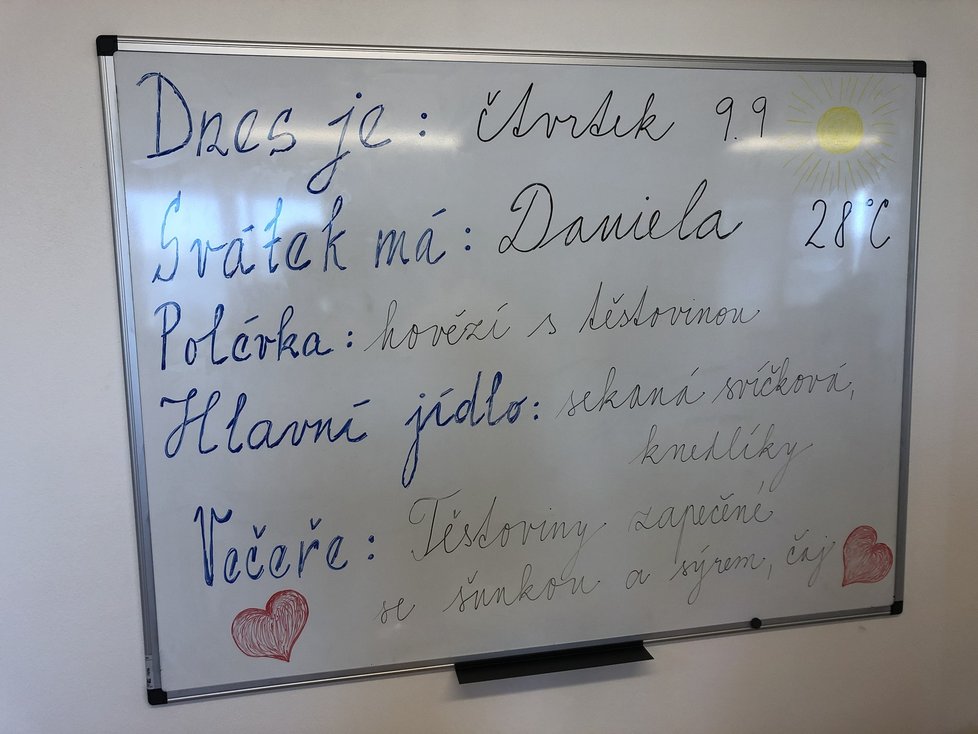 Dnes je: čtvrtek 9.9
Svátek má: Daniela 28°C
Polévka: hovězí s těstovinou
Hlavní jídlo: sekaná svíčková,
knedlíky
Večeře: Těstoviny zapečené
se šunkou a sýrem, čaj